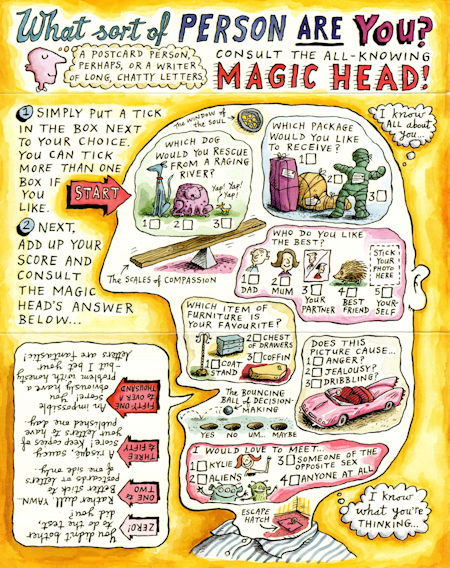 What sort of PERSON ARE YOU?
A POSTCARD PERSON,
PERHAPS, OR A WRITER
OF LONG, CHATTY LETTERS.
CONSULT THE ALL-KNOWING
MAGIC HEAD!
1 SIMPLY PUT A TICK
IN THE BOX NEXT
TO YOUR CHOICE.
YOU CAN TICK
MORE THAN ONE
BOX IF
YOU
LIKE.
START
2 NEXT,
ADD UP YOUR
SCORE AND
CONSULT
THE MAGIC
HEAD'S ANSWER
BELOW...
I know
ALL about
you...
The WINDOW of
the SOUL
WHICH DOG
WOULD YOU RESCUE
FROM A RAGING
RIVER?
Yap! Yap!
Yap!
1 2 3
WHICH PACKAGE
WOULD YOU LIKE
TO RECEIVE?
1
2
3
The SCALES of COMPASSION
WHO DO YOU LIKE
THE BEST?
STICK
YOUR
PHOTO
HERE
1 DAD
2 MUM
3 YOUR
PARTNER
4 BEST
FRIEND
5 YOUR-
SELF
WHICH ITEM OF
FURNITURE IS
YOUR FAVOURITE?
1 COAT
STAND
2 CHEST
OF DRAWERS
3 COFFIN
DOES THIS
PICTURE CAUSE...
1 ANGER?
2 JEALOUSY?
3 DRIBBLING?
The BOUNCING
BALL of DECISION-
MAKING
YES NO UM... MAYBE
I WOULD LOVE TO MEET...
1 KYLIE
2 ALIENS
3 SOMEONE OF THE
OPPOSITE SEX
4 ANYONE AT ALL
ESCAPE
HATCH
I know
what you're
THINKING...
ZERO!
You didn't bother
to do the test,
did you?
ONE to
TWO
Rather dull. YAWN.
Better stick to
postcards or letters
of one side only.
THREE
to FIFTY
score! Keep copies of
your letters to have
published one day.
FIFTY-ONE
to OVER A
THOUSAND
An impossible
score! You
obviously have a
problem with honesty
-but I bet your
letters are fantastic!